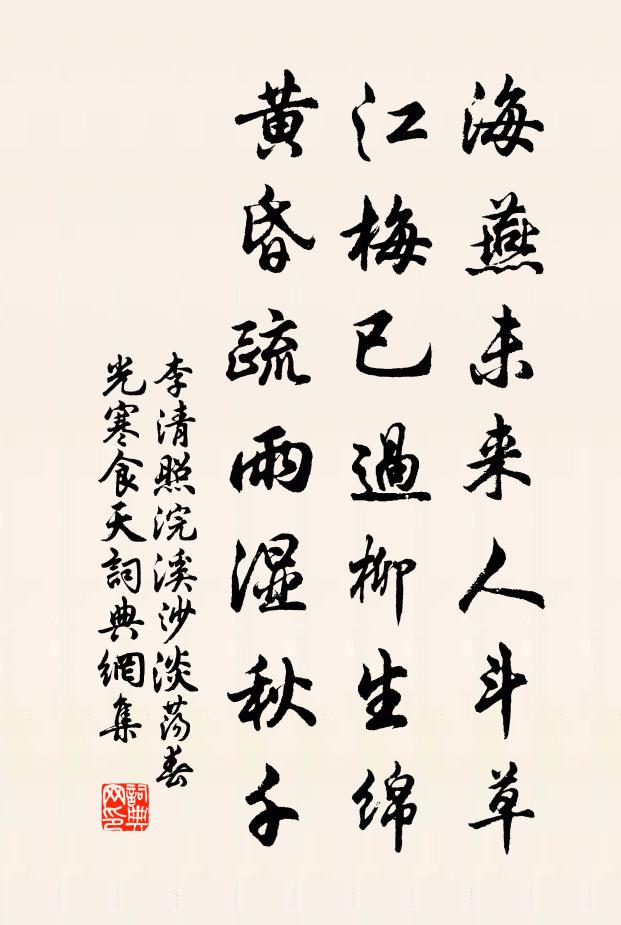 海燕未来人斗草
江梅已過柳生綿
黄昏疏雨湿秋千
李清照浣溪沙淡荡春
光寒食天詞典網集
詞典
网印